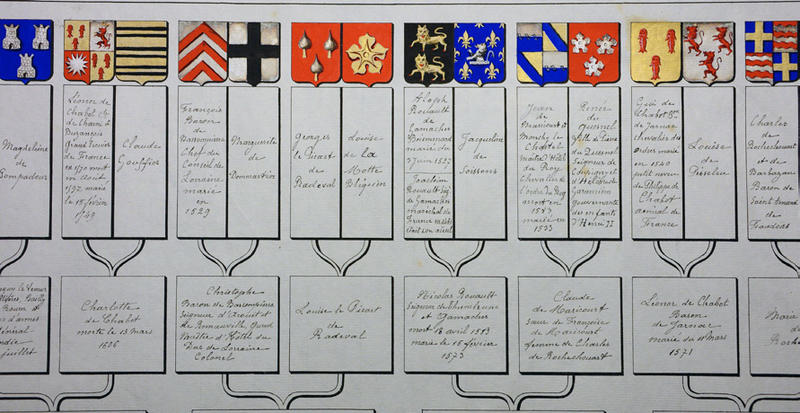 Magdeleine
de
Pompadour
Léonor de
Chabot
de Charni &
Buzançois
Grand
de France
en 1570 mort
en août
1597 marié
le 15 février
1549
Claude
Gouffier
François
Baron
de
Chef du
Conseil de
Lorraine
marié
en
1529
Marguerite
de
Dommartin
Georges
le Picart
de
Radeval
Louise
de la
Motte
Bligsien
Aloph
Rouault
de
Gamaches
marié du
7 juin 1527
Joachim
Rouault Sgr
de Gamaches
maréchal de
France
était son aïeul
Jacqueline
de
Soissons
Jean
de
Maricourt
Monchy le
Chatel
maître d'Hôtel
du Roy
Chevalier de
l'ordre du Roy
mort en
1583
marié en
1533
Renée
du
Quesnel
fille de
du Quesnel
Seigneur de
Coupigny et
d'
gouvernante
des enfants
d'Henri II
Gui de
Chabot
Jarnac
chevalier des
ordres marié
en 1540
petit neveu
de Philippe de
Chabot
amiral de
France
Louise
de
Pisseleu
Charles
de
Rochechouart
et de
Barbazan
Baron de
Saint
de
Faudoas
le Veneur
Bailly
Rouen et
d'armes
Général
juillet
Charlotte
de Chabot
morte le 15 mars
1606
Christophe
Baron de Bassompierre
Seigneur d'Arouët et
de Romainville, Grand
Maître d'Hôtel du
Duc de Lorraine
Colonel
Louise le Picart
de
Radeval
Nicolas Rouault
Seigneur de Thiembrune
et Gamaches
mort 18 avril 1583
marié le 15 février
1573
Claude
de Maricourt
sœur de Françoise
de Maricourt
femme de Charles
de Rochechouart
Léonor de Chabot
Baron
de Jarnac
marié du mars
1571
Marie
de